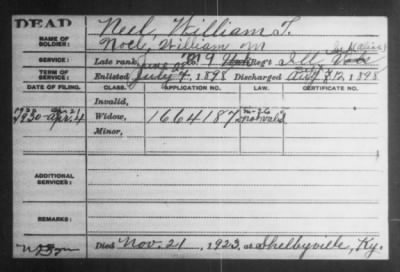 DEAD
NAME OF SOLDIER: Neel, William T.
Noel, William M
SERVICE: Late rank, 9 Regt Ill
TERM OF SERVICE: Enlisted July 7, 1898 Discharged 12, 1898
DATE OF FILING. CLASS. APPLICATION NO. LAW. CERTIFICATE NO.
Invalid,
1930 Apr. 4 Widow, 1664187
Minor,
ADDITIONAL SERVICES:
REMARKS:
Died Nov. 21, 1923, at Shelbyville, Ky.